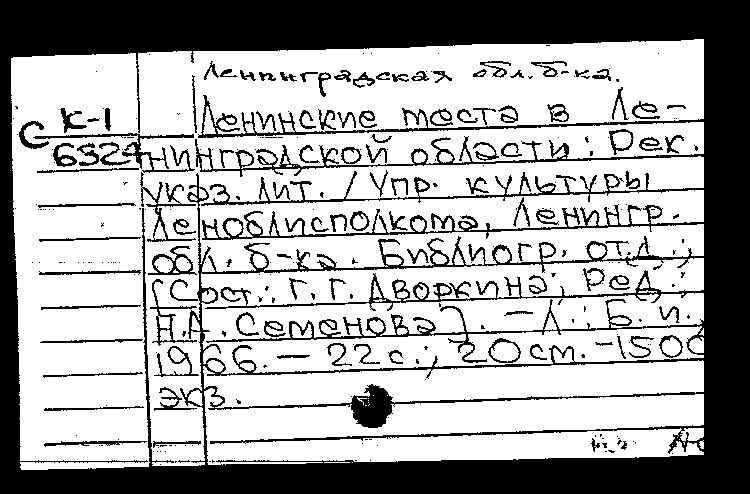 Ленинградская обл. б-ка.
К-1 Ленинские места в Ле-
С 6324 нинградской области: Рек.
указ. лит. / Упр. культуры
Леноблисполкома, Ленингр.
обл. б-ка. Библиогр. отд.;
[Сост.: Г. Г. Дворкина; Ред.:
Н.А. Семенова]. – Л.: Б. и.,
1966. – 22 с.; 20 см. – 1500
экз.